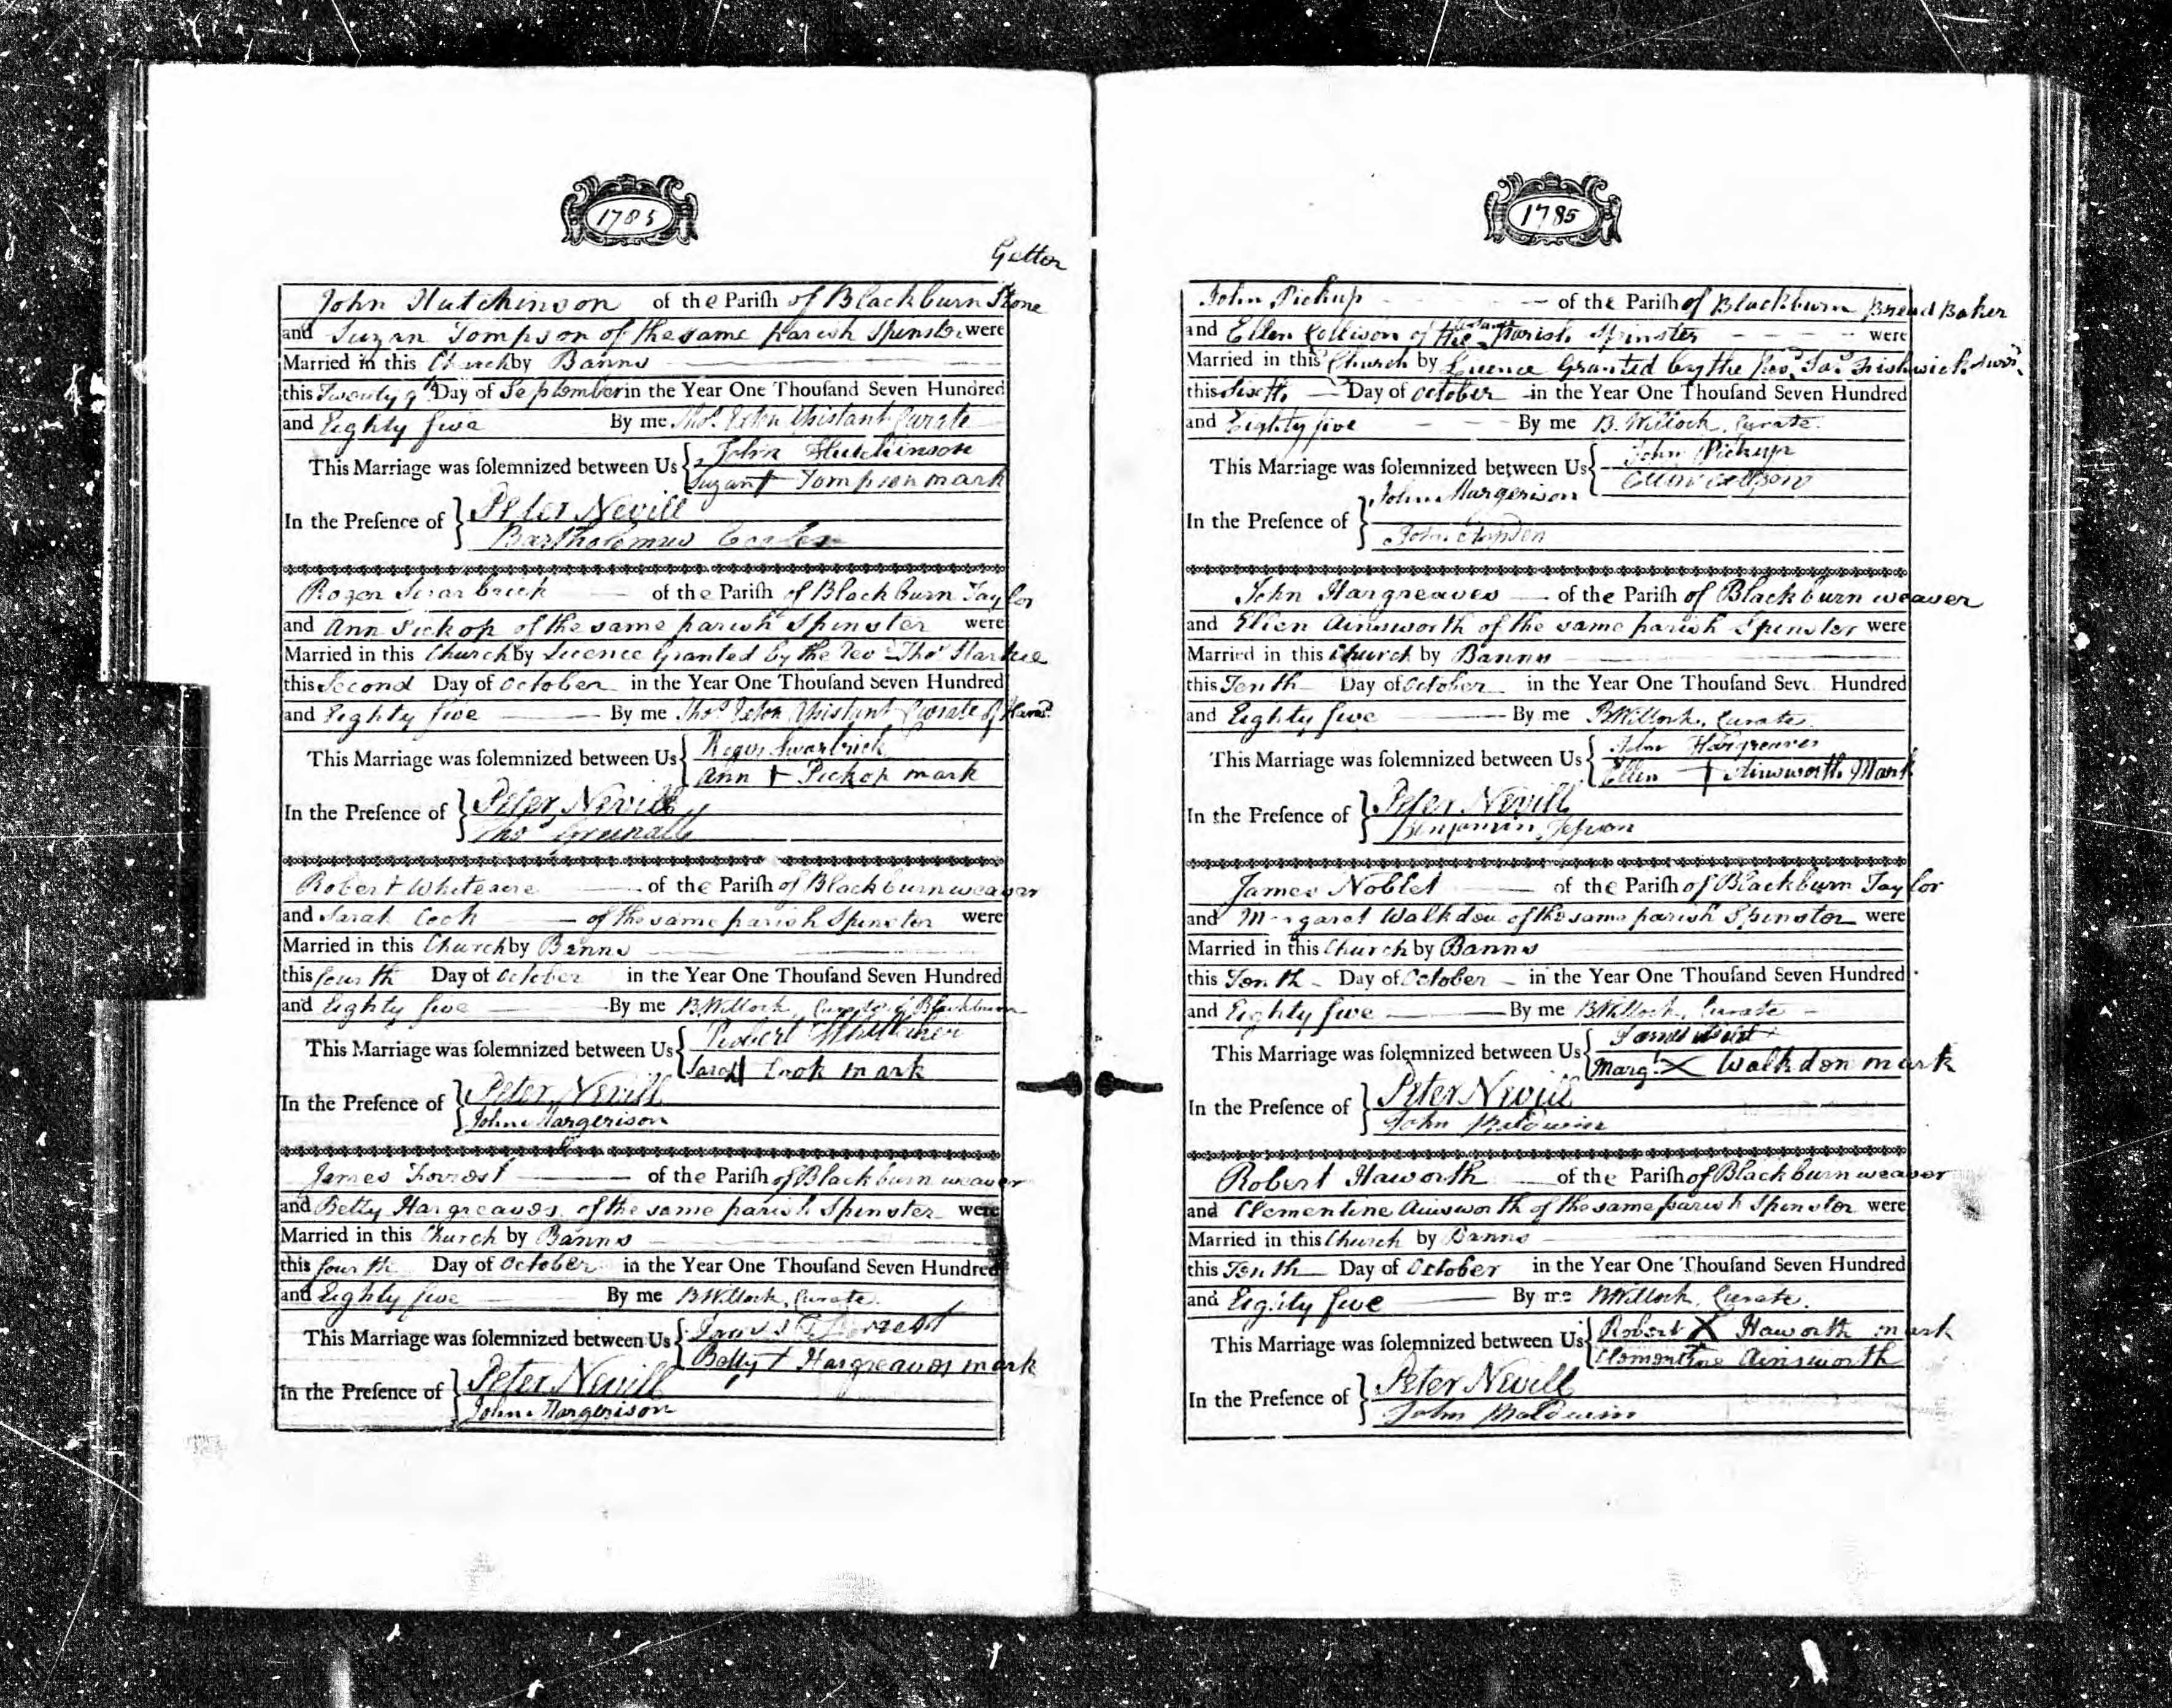 1785
Getter
John Hutchinson of the Pariſh of Blackburn Stone
and Suzan Tompson of the same parish Spinster were
Married in this Church by Banns
this Twenty 9th Day of September in the Year One Thouſand Seven Hundred
and Eighty five By me Thos. Exton Aſsistant Curate
This Marriage was ſolemnized between Us John Hutchinson
Suzan + Tompson mark
In the Preſence of Peter Nevill
Bartholomew
Roger Swarbrick of the Pariſh of Blackburn Taylor
and Ann Pickop of the same parish Spinster were
Married in this Church by Licence Granted by the Revd. Thos. Starkie
this Second Day of October in the Year One Thouſand Seven Hundred
and Eighty five By me Thos. Exton Aſsistant Curate of
This Marriage was ſolemnized between Us Roger Swarbrick
Ann + Pickop mark
In the Preſence of Peter Nevill
Thos
Robert Whiteacre of the Pariſh of Blackburn weaver
and Sarah Cook of the same parish Spinster were
Married in this Church by Banns
this fourth Day of October in the Year One Thouſand Seven Hundred
and Eighty five By me B. Willock, Curate of Blackburn
This Marriage was ſolemnized between Us Robert Whittaker
Sarah Cook mark
In the Preſence of Peter Nevill
John Margerison
James Forrest of the Pariſh of Blackburn weaver
and Betty Hargreaves of the same parish Spinster were
Married in this Church by Banns
this fourth Day of October in the Year One Thouſand Seven Hundred
and Eighty five By me B. Willock, Curate.
This Marriage was ſolemnized between Us James Forrest
Betty + Hargreaves mark
In the Preſence of Peter Nevill
John Margerison
1785
John Pickup of the Pariſh of Blackburn Bread Baker
and Ellen Collison of the same Parish Spinster were
Married in this Church by Licence Granted by the Revd. Jas. Fishwick
this Sixth Day of October in the Year One Thouſand Seven Hundred
and Eighty five By me B. Willock, Curate.
This Marriage was ſolemnized between Us John Pickup
Ellin Collison
In the Preſence of John Margerison
John
John Hargreaves of the Pariſh of Blackburn weaver
and Ellen Ainsworth of the same parish Spinster were
Married in this Church by Banns
this Tenth Day of October in the Year One Thouſand Seve Hundred
and Eighty five By me B. Willock, Curate.
This Marriage was ſolemnized between Us John Hargreaves
Ellen + Ainsworth Mark
In the Preſence of Peter Nevill
Benjamin Jepson
James Noblet of the Pariſh of Blackburn Taylor
and Margaret Walkden of the same parish Spinster were
Married in this Church by Banns
this Tenth Day of October in the Year One Thouſand Seven Hundred
and Eighty five By me B. Willock, Curate
This Marriage was ſolemnized between Us James
Margt. X Walkden mark
In the Preſence of Peter Nevill
John Baldwin
Robert Haworth of the Pariſh of Blackburn weaver
and Clementine Ainsworth of the same parish Spinster were
Married in this Church by Banns
this Tenth Day of October in the Year One Thouſand Seven Hundred
and Eighty five By me B. Willock, Curate.
This Marriage was ſolemnized between Us Robert X Haworth mark
Clementine Ainsworth
In the Preſence of Peter Nevill
John Baldwin